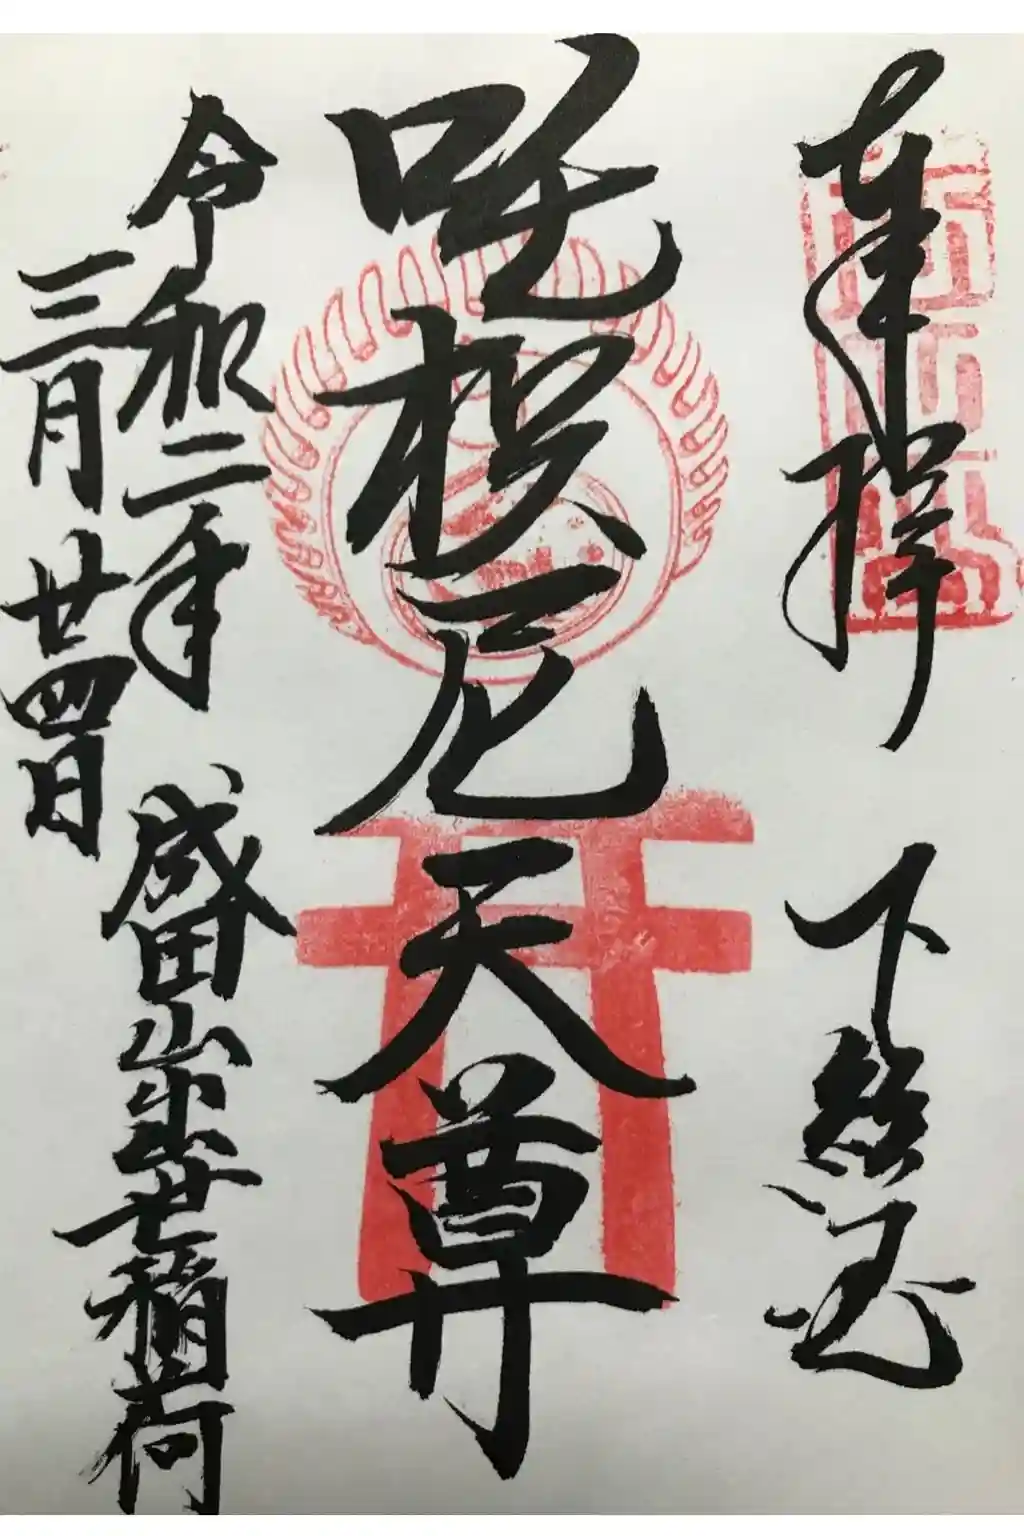 奉拝　下総国
吒枳尼天尊
令和二年
三月廿四日
成田山出世稲荷